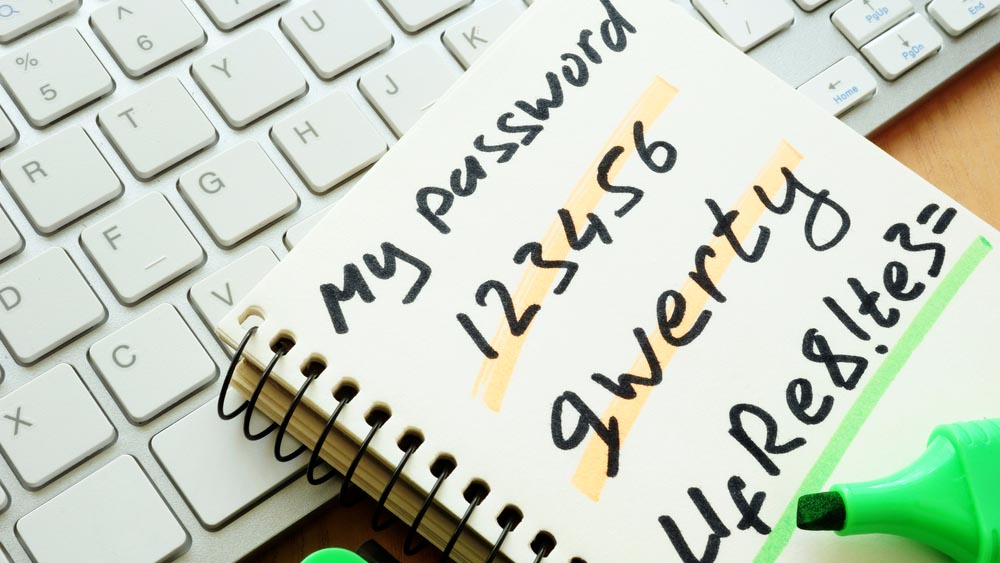 My password
123456
qwerty
4fRe8!te3=
%
5
^
6
R
T
Y
U
D
F
G
H
J
K
X
C
V
PgUp
End
PgDn
Home